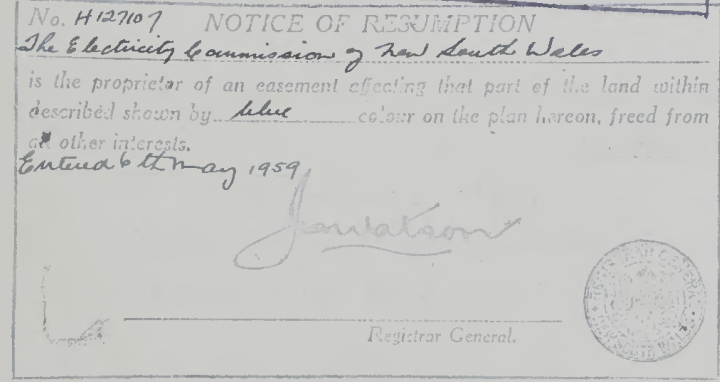 No. H127107 NOTICE OF RESUMPTION
The Electricity Commission of New South Wales
is the proprietor of an easement affecting that part of the land within
described shown by blue colour on the plan hereon, freed from
all other interests.
Entered 6th May 1959
Jawatson
Registrar General.
REGISTRAR GENERAL
NEW SOUTH WALES